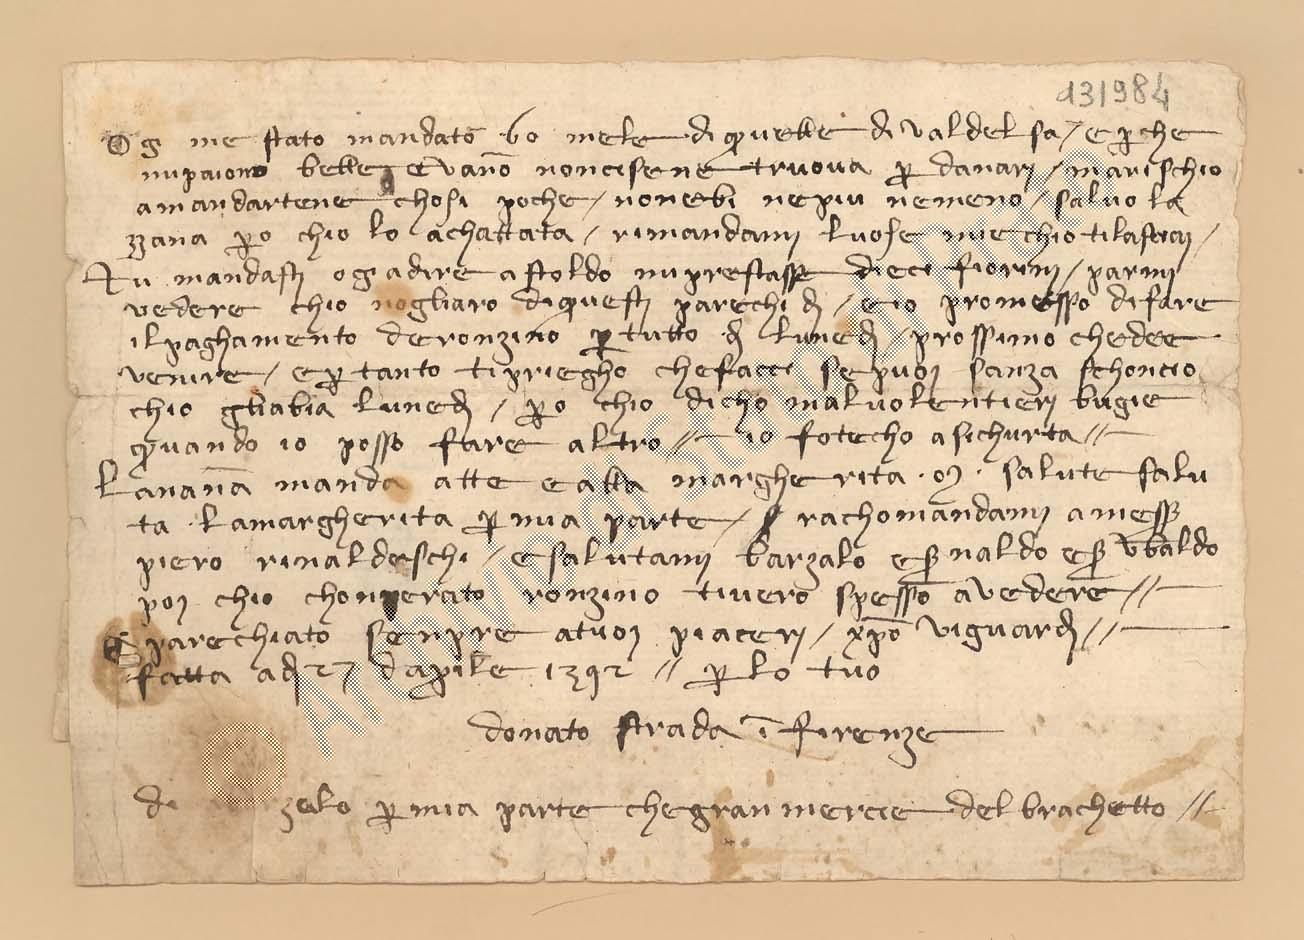 131984
Og me stato mandato 60 mele di quelle di valdelsa / e p che
mi paiono belle e varo non cise ne truova p danari / marischio
a mandartene chosi poche / non ebi ne piu ne meno / salvo la
zana po chio lo achattata / rimandami luose mie chio ti lasciai /
Tu mandasti og a dire a stoldo mi prestasse dieci fiorini / parmi
vedere chio vogliaro di questi parechi di / e io promesso di fare
il paghamento de ronzino p tutto di lunedi prossimo che dee
venire / e p tanto ti priegho che facci se puoi sanza schoncio
chio gli abia lunedi / po chio dicho mal volentieri bugie
quando io posso fare altro // io fo techo a sichurta //
La nana manda atte e alla margherita · m · salute salu
ta · la margherita p mia parte / rachomandami a mess
piero rinaldeschi / e salutami barzalo e s naldo e s ubaldo
poi chio chonperato ronzino ti vero spesso a vedere //
parechiato senpre a tuoi piaceri / xpo vi guardi //
fatta adi 27 daprile 1392 // p lo tuo
donato strada i firenze
di zalo p mia parte che gran mercie del brachetto //
© ARCHIVIO DI STATO DI PRATO